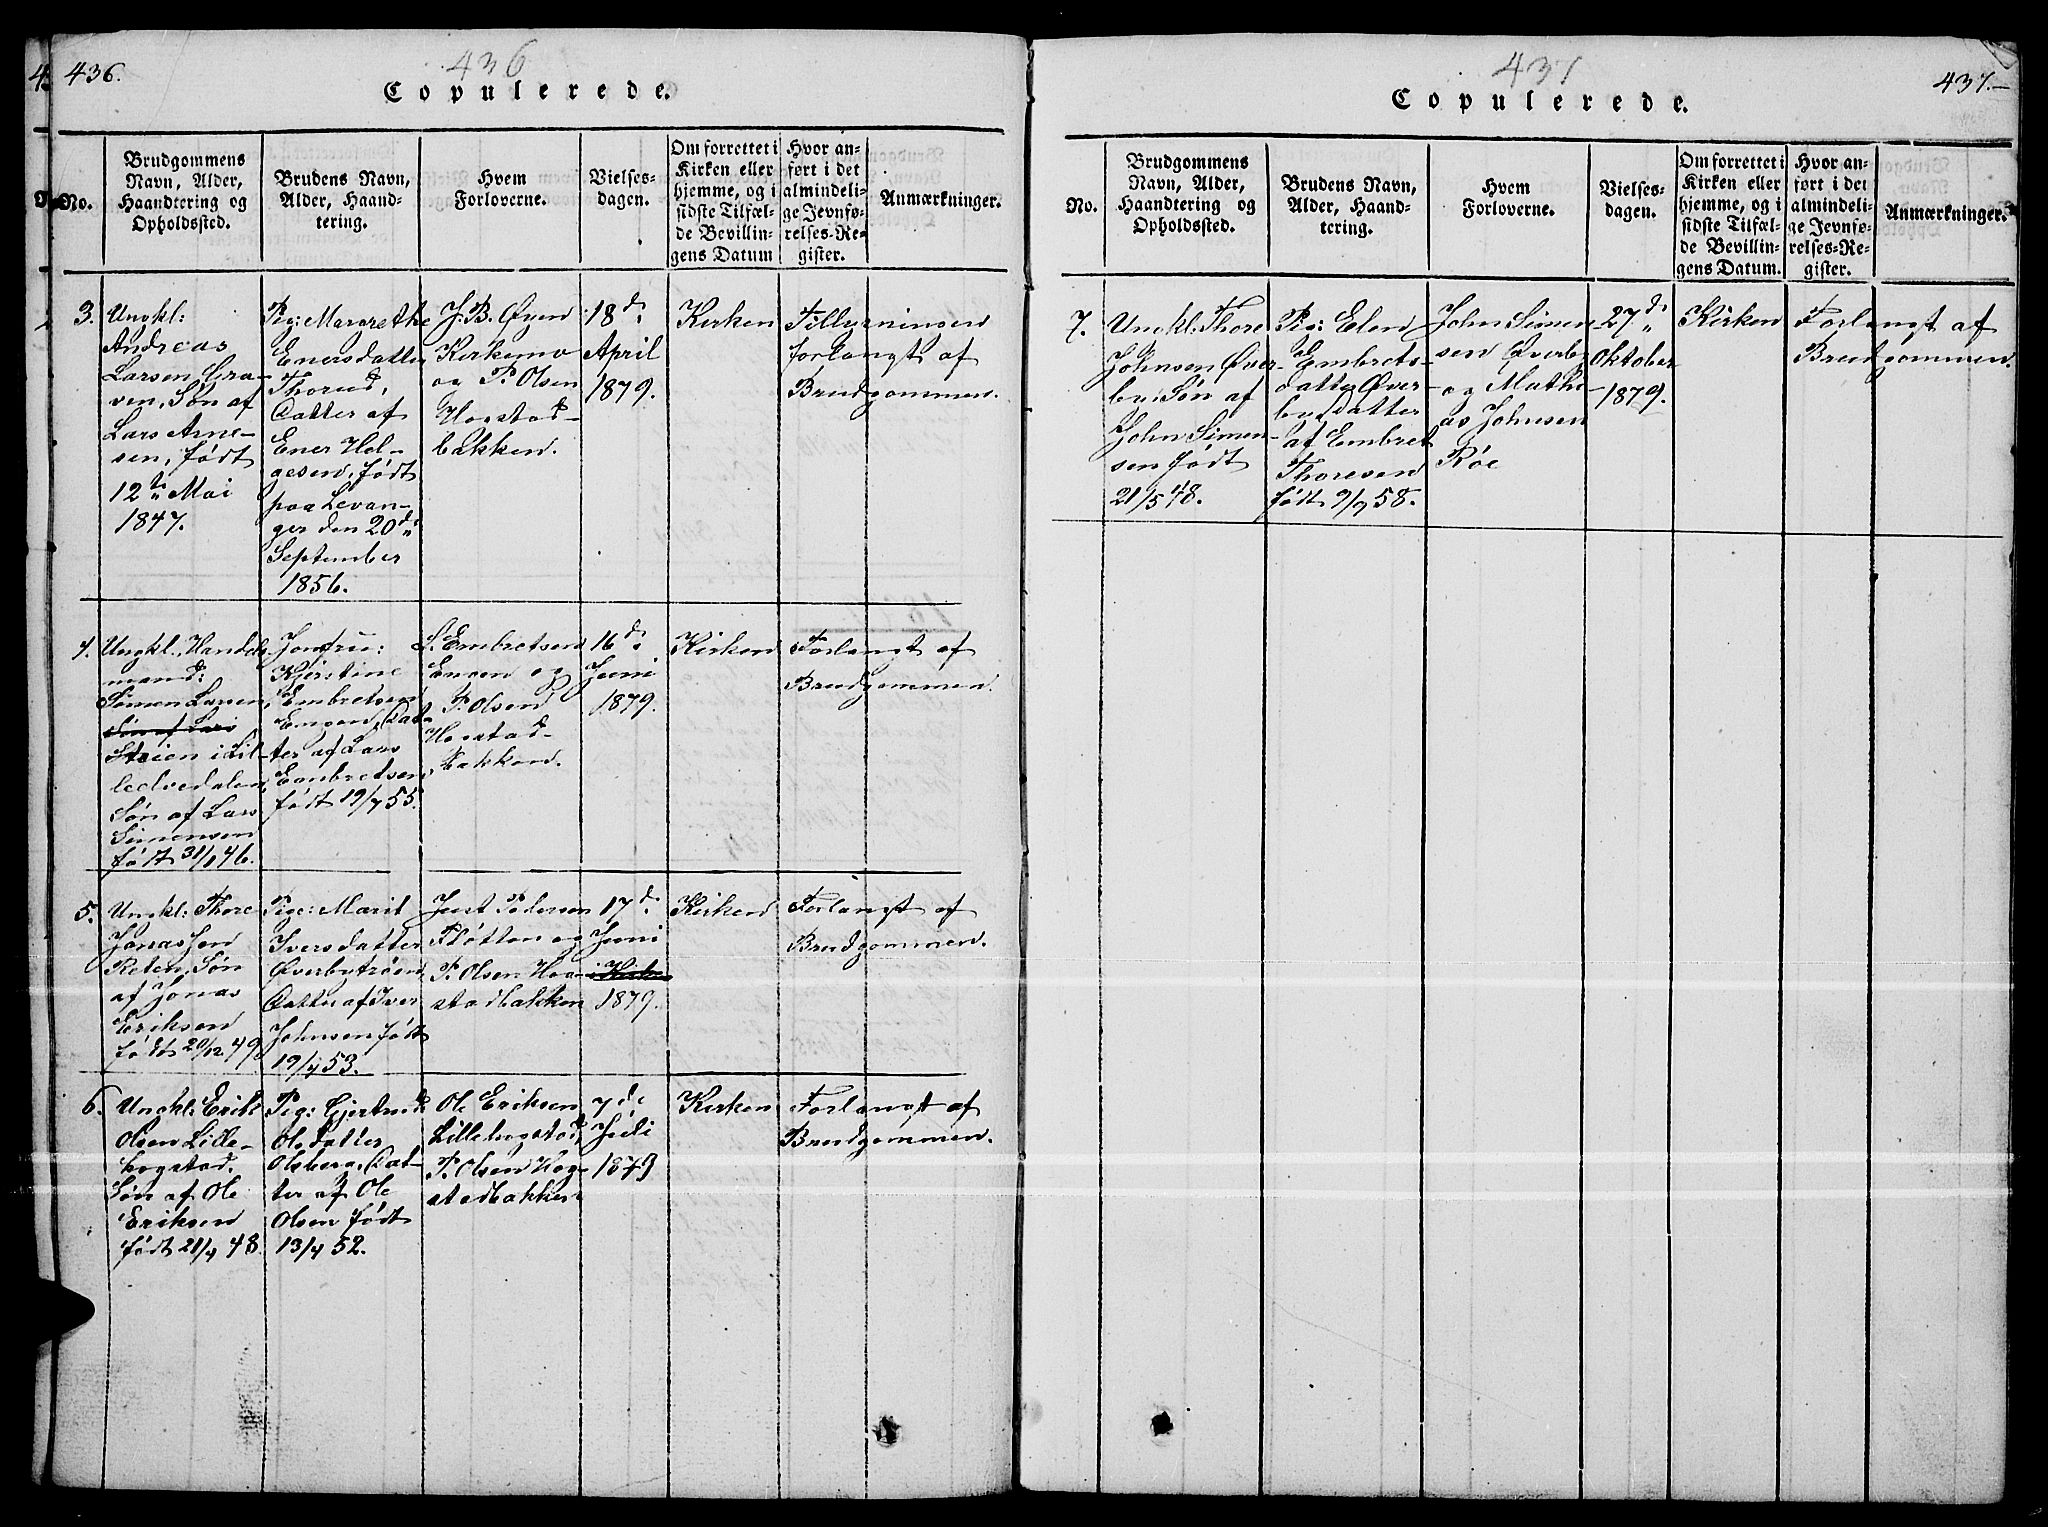 436.
436
Copulerede.
No.
Brudgommens
Navn, Alder,
Haandtering og
Opholdssted.
Brudens Navn,
Alder, Haand-
tering.
Hvem
Forloverne.
Vielses-
dagen.
Om forrettet i
Kirken eller
hjemme, og i
sidste Tilfæl-
de Bevillin-
gens Datum
Hvor an-
ført i det
almindeli-
ge Jevnfø-
relses-Re-
gister.
Anmærkninger.
3.
Ungkl:
Andreas
Larsen
Søn af
Lars Arne-
sen, født
12te Mai
1847.
Pig: Margrethe
Enersdatter
Thorud,
Datter af
Ener Hel-
gesen, født
paa Levan-
ger den 20de
September
1856.
J. B. Øyen
Kirkemo
og P. Olsen
Hogstad-
bakken.
18de
April
1879.
Kirken
Tillysningen
forlangt af
Brudgommen.
4.
Ungkl. Handels-
mand:
Simen Larsen,
Søn af Lars
Steien i Lil-
leelvedalen,
Søn af Lars
Simensen
født 31/1 46.
Jomfru:
Kjerstine
Embretsen
Engen, Dat-
ter af Lars
Embretsen,
født 19/7 55.
L. Embretsen
Engen og
P. Olsen
Hogstad-
bakken.
16de
Juni
1879.
Kirken
Forlangt af
Brudgommen.
5.
Ungkl: Thore
Jonassen
Røten, Søn
af Jonas
Eriksen
født 20/12 49.
Pige: Marit
Iversdatter
Øverbytrøen,
Datter af Iver
Johnsen født
19/4 53.
Just Pedersen
Pløtten og
P. Olsen Hog-
stadbakken
17de
Juni
1879.
Kirken
Forlangt af
Brudgommen.
6.
Ungkl: Erik
Olsen Lille-
hogstad.
Søn af Ole
Eriksen
født 21/4 48.
Pig: Gjertrud
Olsdatter
Olsberg, Dat-
ter af Ole
Olsen født
13/4 52.
Ole Eriksen
Lillehogstad,
P. Olsen Hog-
stadbakken
7de
Juli
1879
Kirken
Forlangt af
Brudgommen.
437
437.
Copulerede.
No.
Brudgommens
Navn, Alder,
Haandtering og
Opholdssted.
Brudens Navn,
Alder, Haand-
tering.
Hvem
Forloverne.
Vielses-
dagen.
Om forrettet i
Kirken eller
hjemme, og i
sidste Tilfæl-
de Bevillin-
gens Datum.
Hvor an-
ført i det
almindeli-
ge Jevnfø-
relses-Re-
gister.
Anmærkninger.
7.
Ungkl. Thore
Johnsen Øver-
by: Søn af
John Simen-
sen født
21/5 48.
Pig: Elen
Embrets-
datter Øver-
by, Datter
af Embret
Thoresen
født 9/9 58.
John Simen-
sen Øverby
og Mathi-
as Johnsen
Røe
27de
Oktober
1879.
Kirken
Forlangt af
Brudgommen.